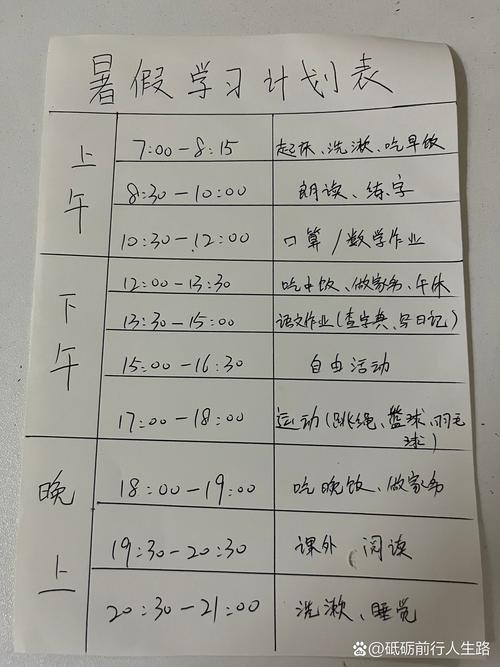 暑假学习计划表
上午
7:00-8:15 起床、洗漱、吃早饭
8:30-10:00 朗读、练字
10:30-12:00 口算/数学作业
下午
12:00-13:30 吃中饭、做家务、午休
13:30-15:00 语文作业(查字典、写日记)
15:00-16:30 自由活动
17:00-18:00 运动(跳绳、篮球、羽毛
球)
晚上
18:00-19:00 吃晚饭、做家务
19:30-20:30 课外阅读
20:30-21:00 洗漱、睡觉
@砥砺前行人生路